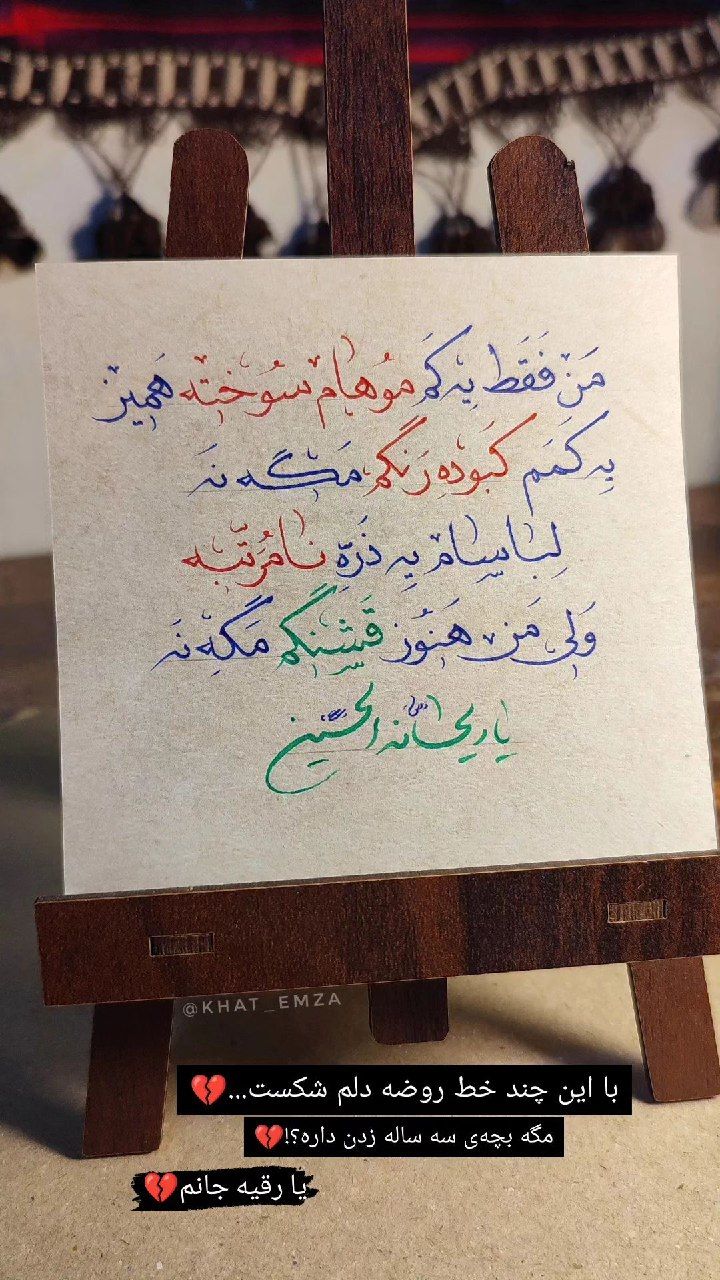 مَن فَقَط یِه کَم مُوهام سُوخته هَمین
یِه کَمَم کَبوده رَنگم مَگه نَه
لِباسام یِه ذَرّه نامُرَتّبه
وَلی مَن هَنوز قَشنگم مَگه نَه
یا ریحانة الحسین
@KHAT_EMZA
با این چند خط روضه دلم شکست...💔
مگه بچه‌ی سه ساله زدن داره؟!💔
یا رقیه جانم💔